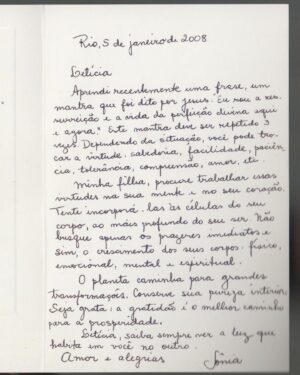 Rio, 5 de janeiro de 2008
Letícia
Aprendi recentemente uma frase, um
mantra que foi dito por Jesus: Eu sou a res-
surreição e a vida da perfeição divina aqui
e agora." Este mantra deve ser repetido 3
vezes. Dependendo da situação, você pode tro-
car a virtude: sabedoria, facilidade, paciên-
cia, tolerância, compreensão, amor, etc.
Minha filha, procure trabalhar essas
virtudes na sua mente e no seu coração.
Tente incorporá-las às células do seu
corpo, ao mais profundo do seu ser. Não
busque apenas os prazeres imediatos e
sim, o crescimento dos seus corpos: físico,
emocional, mental e espiritual.
O planeta caminha para grandes
transformações. Conserve sua pureza interior.
Seja grata: a gratidão é o melhor caminho
para a prosperidade.
Letícia, saiba sempre ver a luz que
habita em você no outro.
Amor e alegrias Sônia